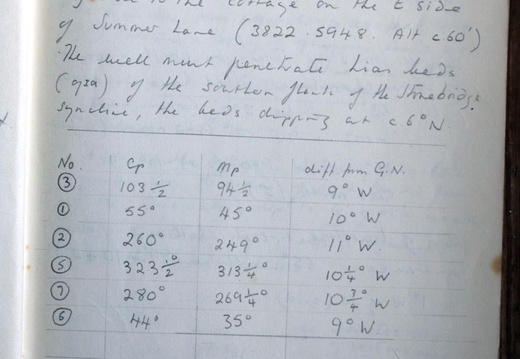 to the cottage on the E side
of Summer Lane (3822 . 5948. Alt c 60')
The well must penetrate Lias beds
(g5a) of the southern flank of the Stonebridge
syncline, the beds dipping at c 6° N.
No. Cp Mp diff from G.N.
③ 103 ½ 94 ½ 9° W
① 55° 45° 10° W
② 260° 249° 11° W
⑤ 323 ½° 313 ¼° 10 ¼° W
⑦ 280° 269 ¼° 10 ¾° W
⑥ 44° 35° 9° W